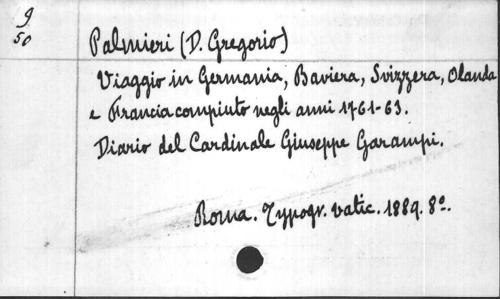 9
50
Palmieri (D. Gregorio)
Viaggio in Germania, Baviera, Svizzera, Olanda
e Francia compiuto negli anni 1761-63.
Diario del Cardinale Giuseppe Garampi.
Roma. Typogr. vatic. 1889. 8º.